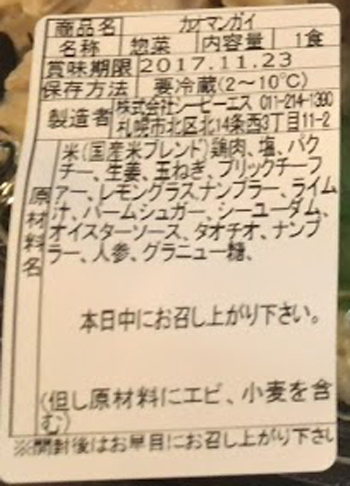 商品名 カオマンガイ
名称 惣菜 内容量 1食
賞味期限 2017.11.23
保存方法 要冷蔵(2~10℃)
製造者 株式会社シーピーエス 011-214-1390
札幌市北区北14条西3丁目11-2
原材料名 米(国産米ブレンド)鶏肉、塩、パク
チー、生姜、玉ねぎ、ブリックチーフ
アー、レモングラス,ナンプラー、ライム
汁、パームシュガー、シーユーダム、
オイスターソース、タオチオ、ナンプ
ラー、人参、グラニュー糖、
本日中にお召し上がり下さい。
(但し原材料にエビ、小麦を含
む)
※開封後はお早目にお召し上がり下さい